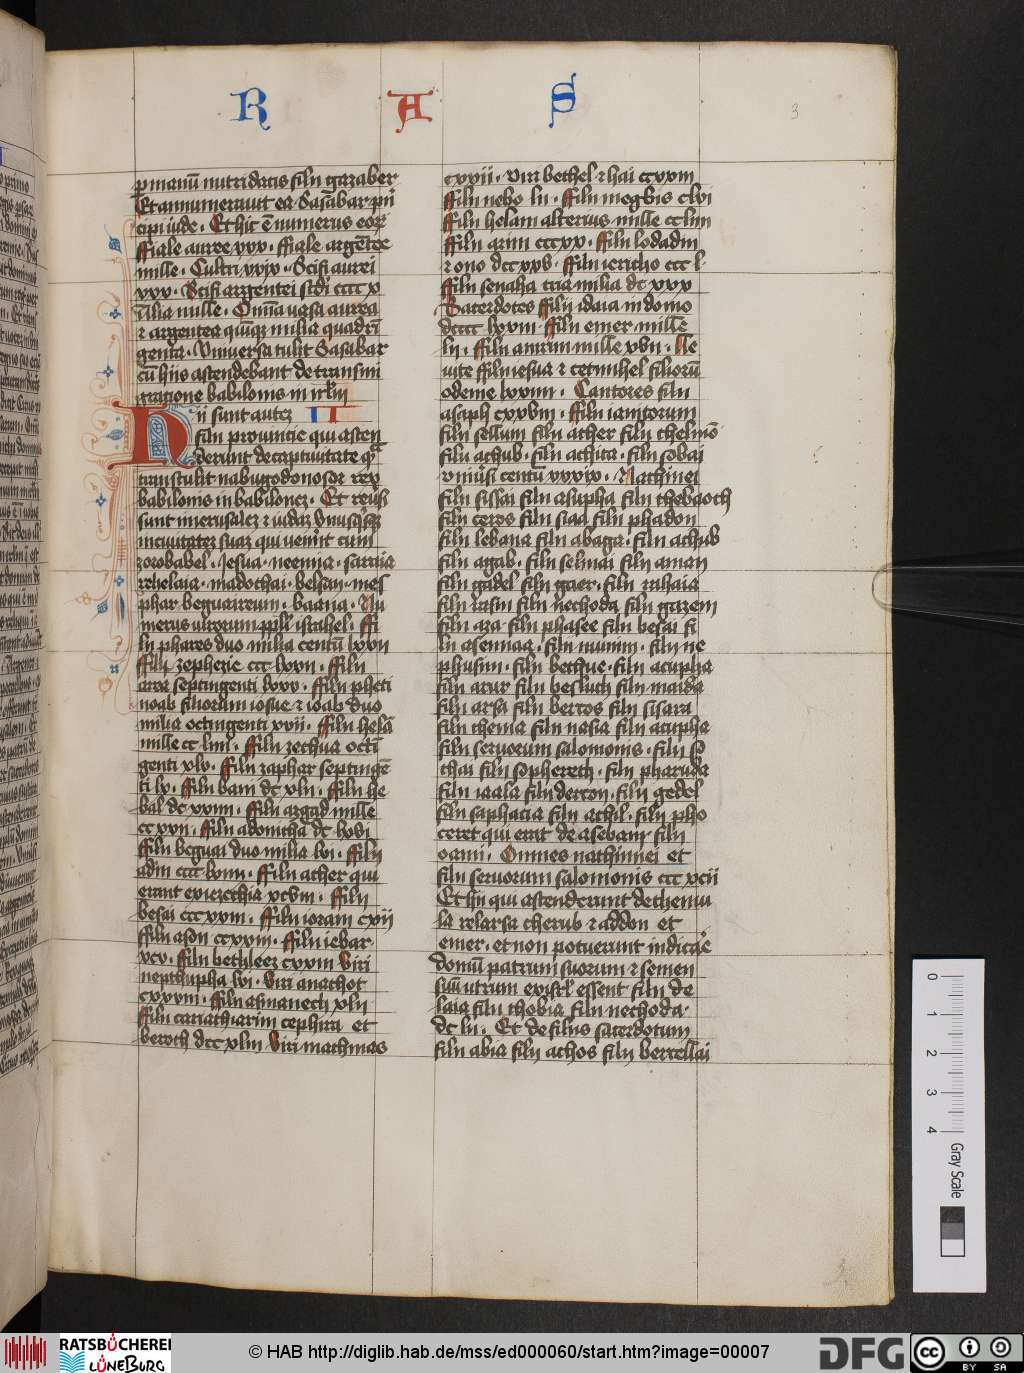 R A S
3
p manū nutridatis filij gazaber
Et annumeravit ea Sasabar prī
cipi iude · Et hic ē numerus eoꝝ
ffiale auree xxx · ffiale argētee
mille · Cultri xxix · Scifi aurei
xxx · Scifi argentei sc̄di cccc x
Alia mille · Om̄ia vasa aurea
⁊ argentea quīqꝫ milia quadrī
genta · Universa tulit Sasabar
cū hiis ascendebant de transmi
gratione babilonis in irl̄m
Hii sunt autez II
filij provincie qui ascen
derunt de captivitate qȝ
transtulit nabugodonosor rex
babilonis in babilonez · Et reūsi
sunt in ierusalez ⁊ iudaz vnusqͥsqȝ
in civitatez suaz qui venērt cum
zorobabel · Iesua · neemia · saraia
rehelaia · madochai · belsan · mes
phar beguai reum · baana · Nu
merus virorum pp̄li isrāhel · ffi
lij phares duo milia centū lxxij
ffilij zephetie ccc lxxij · ffilij
area septingenti lxxv · ffilij pheti
moab filiorum iosue ⁊ ioab duo
milia octingenti xvij · ffilij helā
mille cc liiij · ffilij zechua octī
genti xlv · ffilij zaphar septingē
ti lx · ffilij bani dc xlij · ffilij he
bal dc xxiij · ffilij azgad mille
cc xxij · ffilij adonicha dc lxvi
ffilij beguai duo milia lvi · ffilij
adin cccc liiij · ffilij acher qui
erant ex iezechia xcviij · ffilij
besai ccc xxiij · ffilij ioram cxij
ffilij asom ccxxiij · ffilij iebar
xcv · ffilij bethleez cxxiij Viri
nepthupha lvi · Viri anathot
cxxviij · ffilij asmanech xlij
ffilij cariathiarim cephira et
beroth dcc xliij Viri machmas
cxxij · viri bethel ⁊ hai ccxxiij
ffilij nebo lij · ffilij megbis clvi
ffilij helam alterius mille cc liiij
ffilij arim cccxx · ffilij lodadin
⁊ ono dcc xxv · ffilij iericho ccc l·
ffilij senaha tria milia dc xxx
Sacerdotes ffilij idaia in domo
dcccc lxxiij · ffilij emer mille
lij · ffilij arirum mille xvij · Le
uite ffilij iesua ⁊ cetmihel filiorū
odeme lxxiiij · Cantores filij
asaph cxxviij · ffilij ianitorum
filij sellum filij ather filij thelmō
filij achub · filij achita · filij sobai
vniūsi centū xxxix · Nathinei
filij sissai filij asupha filij thebaoth
filij ceros filij siaa filij phadon
filij lebana filij abaga · filij achub
filij agab · filij selmai filij aman
filij gadel filij gaer · filij rahaia
filij rasin filij nechoda filij gazem
filij aza filij phasee filij besai fi
lij asennaa · filij munim · filij ne
phusim · filij bethue · filij acupha
filij azur filij besluth filij maida
filij arsa filij bercos filij sisara
filij thema filij nasia filij acupha
filij servorum salomonis · filij so
thai filij sophereth · filij pharuda
filij iaala filij dercon · filij gedel
filij saphacia filij athil · filij pho
ceret qui erat de asebaim filij
oami · Omnes nathinnei et
filij servorum salomonis ccc xcij
Et hij qui ascenderunt de themu
la relarsa cherub ⁊ addon et
emer · et non potuerunt indicare
domū patrum suorum ⁊ semen
suū utrum ex isrl essent filij de
laia filij thobia filij nechoda·
dc lij · Et de filijs sacerdotum
filij abia filij achos filij berzellai
0 1 2 3 4
Gray Scale
RATSBÜCHEREI
LÜNEBURG
© HAB http://diglib.hab.de/mss/ed000060/start.htm?image=00007
DFG
cc BY SA